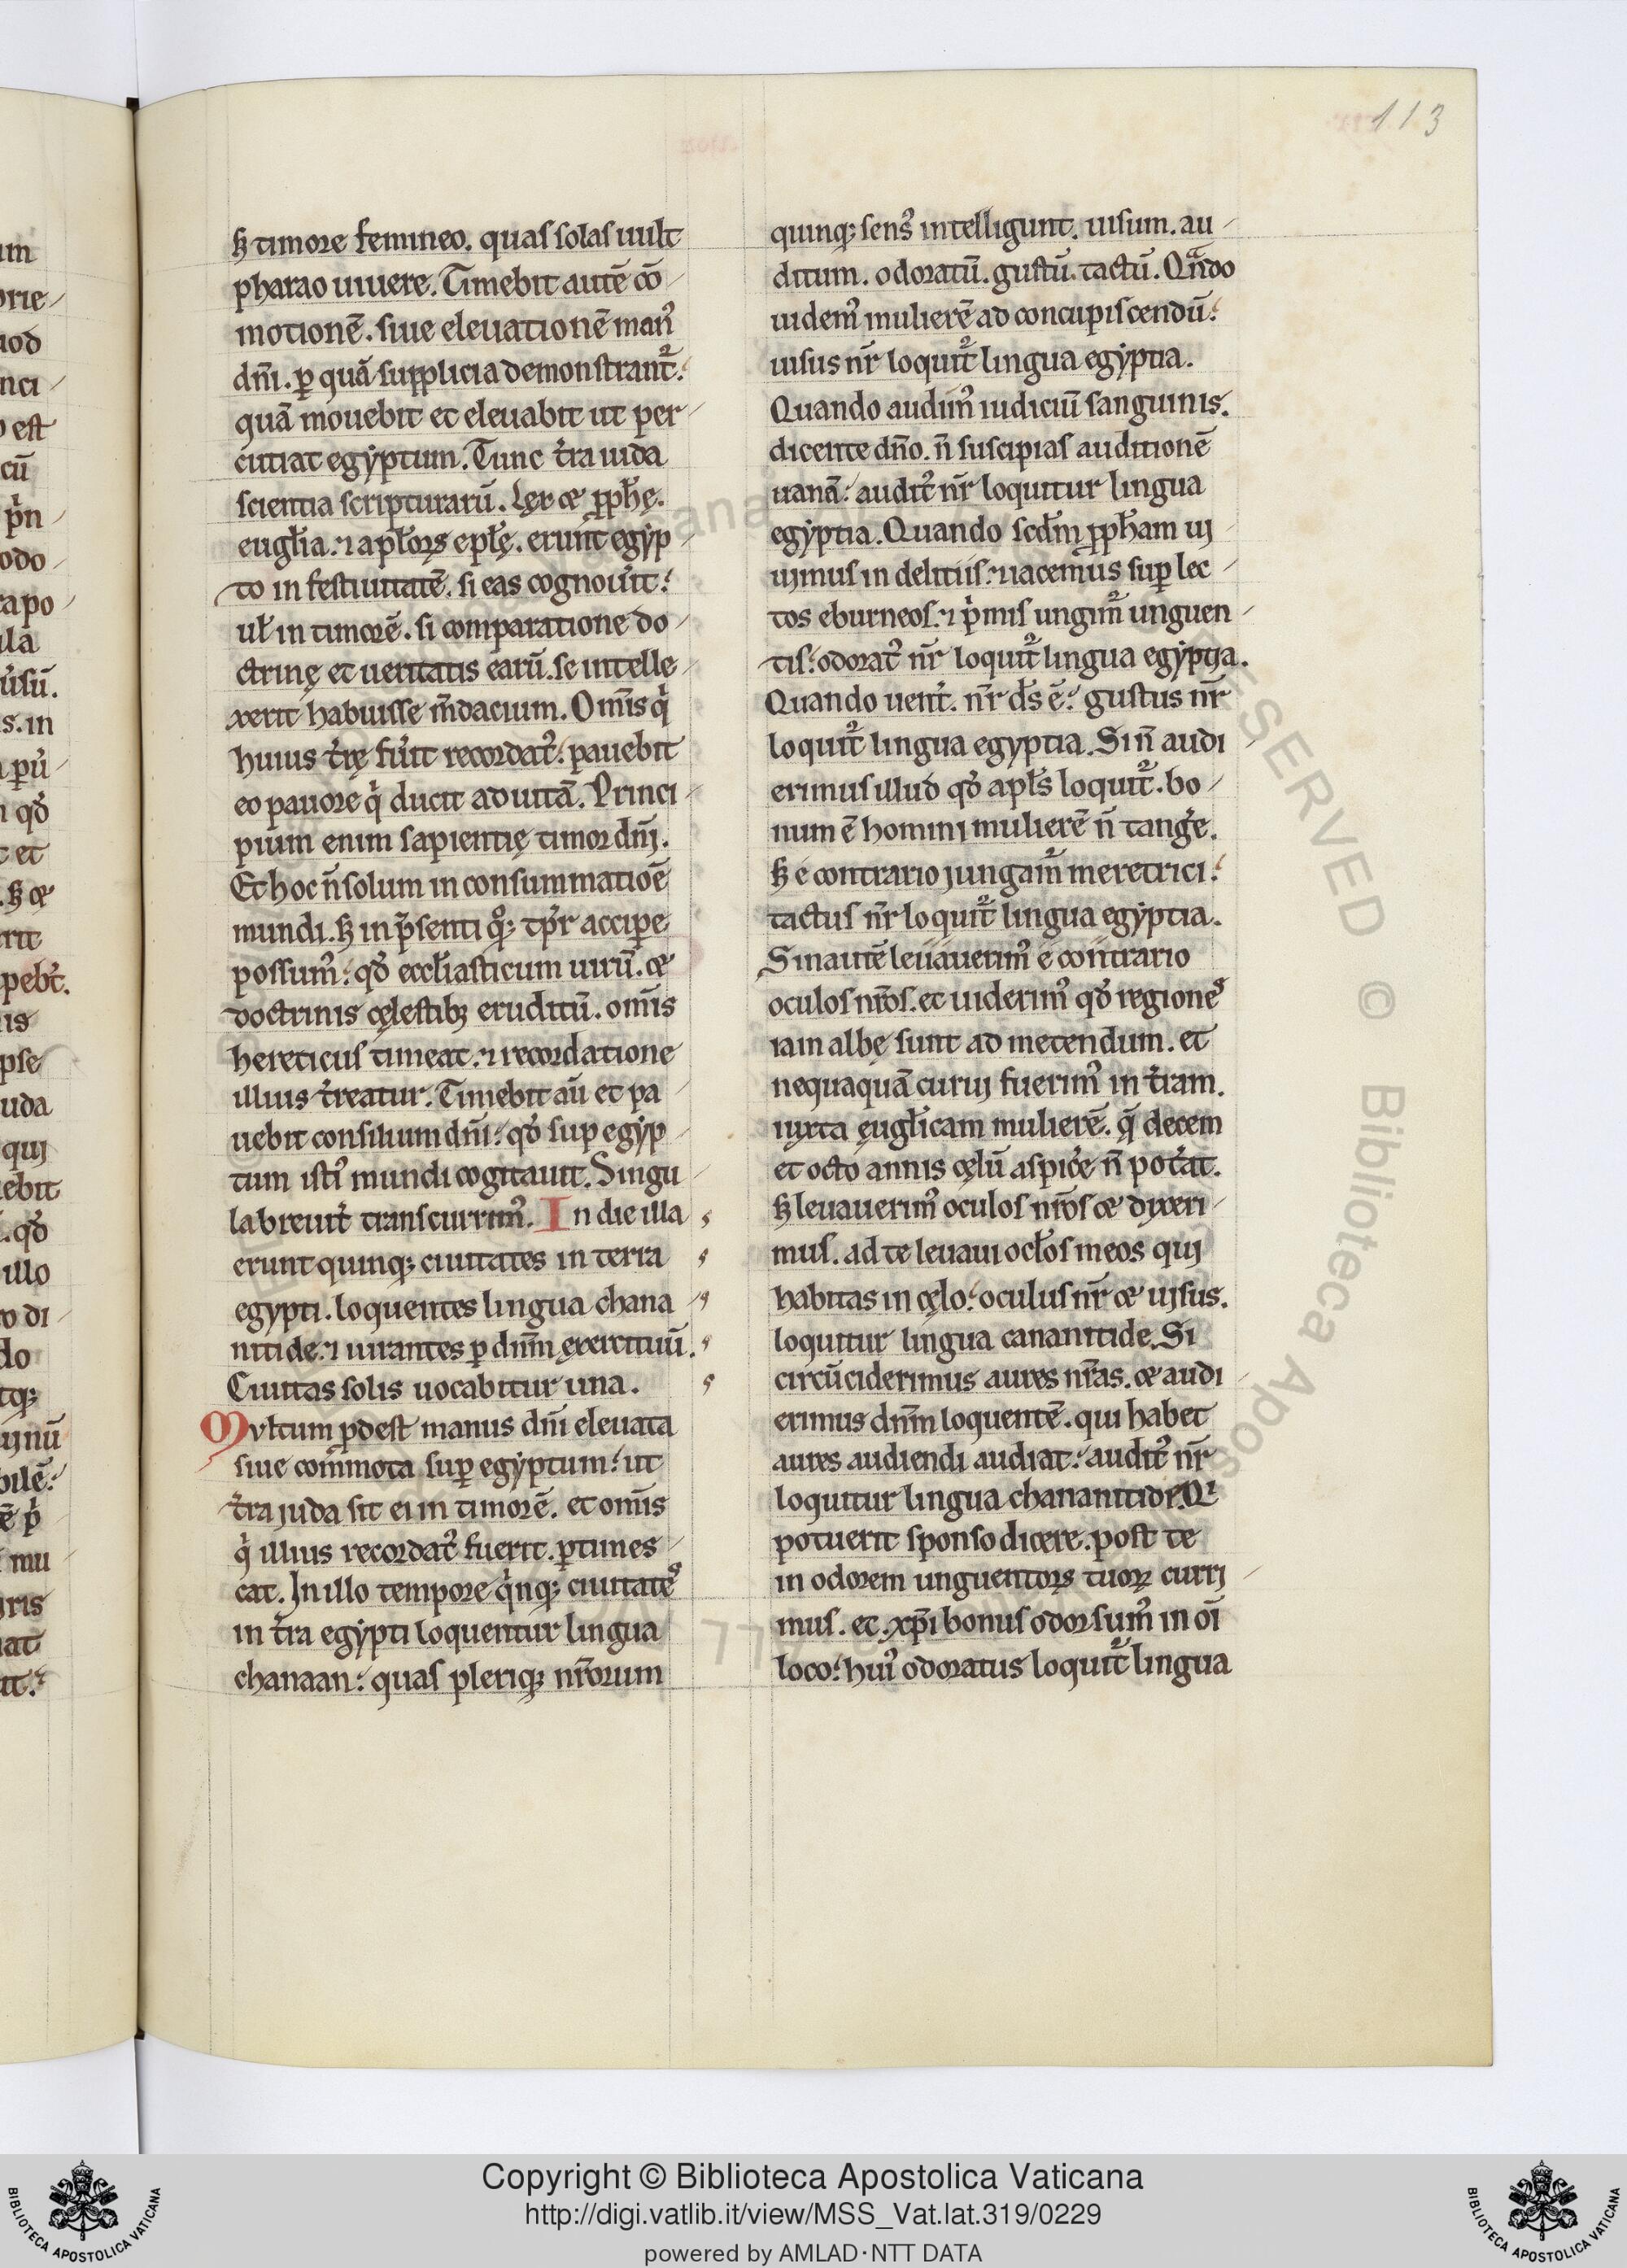 113
ꝫ timore femineo. quas solas uult
pharao uiuere. Timebit autē cō
motionē. siue eleuationē manꝰ
dn̄i. ꝑ quā supplicia demonstrant᷑.
quā mouebit et eleuabit ut per
cutiat egyptum. Tunc t̄ra iuda
scientia scripturarū. Lex ⁊ ꝓph̄ę.
eugl̄ia. ⁊ apl̄oꝝ epl̄ę. erunt egyp
to in festiuitatē. si eas cognou̓it.
ul̄ in timorē. si comparatione do
ctrinę et ueritatis earū. se intelle
xerit habuisse m̄dacium. Om̄is q̇
huius t̄rę fu̓it recordatꝰ. pauebit
eo pauore q̇ ducit ad uitā. Princi
pium enim sapientię timor dn̄i.
Et hoc n̄ solum in consummatioē
mundi. ꝫ in p̄senti qͦꝫ tp̄r accipe
possumꝰ. qd̓ eccl̄iasticum uirū. ⁊
doctrinis cęlestibꝫ eruditū. om̄is
hereticus timeat. ⁊ recordatione
illius t̄reatur. Timebit aū et pa
uebit consilium dn̄i. qd̓ sup egyp
tum istiꝰ mundi cogitauit. Singu
la breuit̓ transcurrimꝰ. In die illa
erunt quinqꝫ ciuitates in terra
egypti. loquentes lingua chana
nitide. ⁊ iurantes ꝑ dn̄m exercituū.
Ciuitas solis uocabitur una.
Multum ꝓdest manus dn̄i eleuata
siue com̄mota suꝑ egyptum. ut
t̄ra juda sit ei in timorē. et om̄is
q̇ illius recordatꝰ fuerit. ꝑtimes
cat. In illo tempore q̇nqꝫ ciuitates
in t̄ra egypti loquentur lingua
chanaan. quas pleriqꝫ nr̄orum
quinqꝫ sensꝰ intelligunt. uisum. au
ditum. odoratū. gustū. tactū. Qn̄do
uidemꝰ mulierē ad concupiscendū.
uisus nr̄ loquit᷑ lingua egyptia.
Quando audimꝰ iudiciū sanguinis.
dicente dn̄o. n̄ suscipias auditionē
uanā. auditꝰ nr̄ loquitur lingua
egyptia. Quando scd̄m ꝓph̄am ui
uimus in delitiis. ⁊ iacemus suꝑ lec
tos eburneos. ⁊ p̓mis ungim᷑ unguen
tis. odoratꝰ nr̄ loquit᷑ lingua egyptia.
Quando uent̓. nr̄ ds̄ ē. gustus nr̄
loquit᷑ lingua egyptia. Sin̄ audi
erimus illud qd̓ apl̄s loquit᷑. bo
num ē homini mulierē n̄ tang̓e.
ꝫ e contrario jungam᷑ meretrici.
tactus nr̄ loquit᷑ lingua egyptia.
Sin autē leuauerimꝰ e contrario
oculos nr̄os. et uiderimꝰ qd̓ regiones
iam albę sunt ad metendum. et
nequaquā curui fuerimꝰ in t̄ram.
iuxta eugl̄icam mulierē. q̄ decem
et octo annis cęlū aspic̓e n̄ pot̓at.
ꝫ leuauerimꝰ oculos nr̄os ⁊ dixeri
mus. ad te leuaui ocl̄os meos qui
habitas in cęlo. oculus nr̄ ⁊ uisus.
loquitur lingua cananitide. Si
circūciderimus aures nr̄as. ⁊ audi
erimus dn̄m loquentē. qui habet
aures audiendi audiat. auditꝰ nr̄
loquitur lingua chananitide. Qⁱ
potuerit sponso dicere. post te
in odorem unguentoꝝ tuoꝝ curri
mus. et. xp̄i bonus odor sumꝰ in oī
loco. huiꝰ odoratus loquit᷑ lingua
Copyright © Biblioteca Apostolica Vaticana
http://digi.vatlib.it/view/MSS_Vat.lat.319/0229
powered by AMLAD·NTT DATA
BIBLIOTECA APOSTOLICA VATICANA
BIBLIOTECA APOSTOLICA VATICANA